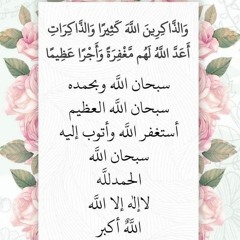 وَالذَّاكِرِينَ اللَّهَ كَثِيرًا وَالذَّاكِرَاتِ
أَعَدَّ اللَّهُ لَهُم مَّغْفِرَةً وَأَجْرًا عَظِيمًا
سبحان اللَّه وبحمده
سبحان اللَّه العظيم
أستغفر اللَّه وأتوب إليه
سبحان اللَّه
الحمدللَّه
لاإله إلا اللَّه
اللَّه أكبر